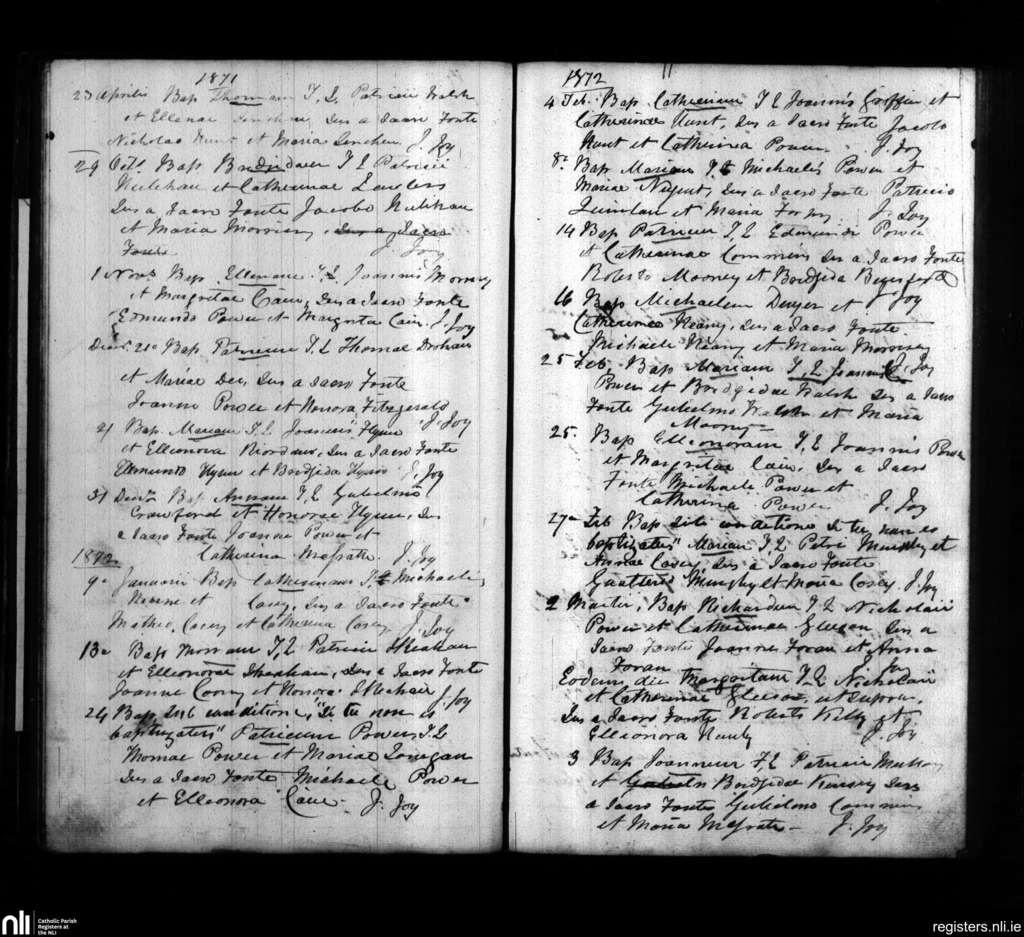 1871
23 Aprilis Bap Thomam F. L. Patricii Walsh
et Ellenae Sus a Sacro Fonte
Nicholao et Maria J. Joy
29 Oct. Bap Bridgidam F L Patricii
et Catherinae Lawlers
Sus a Sacro Fonte Jacobo
et Maria Morrisey, Sus a Sacro
Fonte J. Joy
1 Nov. Bap. Ellenam F. L. Joannis Morrisey
et Margritae Cain, Sus a Sacro Fonte
Edmundo Power et Margrita Cain. J. Joy
Dec. 21 Bap Patricium F. L Thomae Drohan
et Mariae Dee, Sus a Sacro Fonte
Joanne Power et Honora Fitzgerald
J. Joy
21 Bap. Mariam F. L. Joannis Flynn
et Ellenora Riordan, Sus a Sacro Fonte
Edmundo Flynn et Bridgida Flynn J. Joy
31 Bap Annam F. L Gulielmi
Crawford et Honorae Flynn, Sus
a Sacro Fonte Joanne Power et
Catherina McGrath. J. Joy
1872.
9 Januarii Bap Catherinam F. L Michaelis
et Casey, Sus a Sacro Fonte
Matheo Casey et Catherina Casey J. Joy
13 Bap F. L Patricii Sheahan
et Elleonorae Sheahan, Sus a Sacro Fonte
Joanne et Honora J. Joy
24 Bap, Sub conditione, "Si tu non es
baptizatus" Patricium Power F. L
Thomae Power et Mariae Lonegan
Sus a Sacro Fonte Michaele Power
et Elleonora Cain J. Joy
1872
4 Feb. Bap Catherinam F L Joannis Griffin et
Catherinae Hunt, Sus a Sacro Fonte Jacobo
Hunt et Catherina Power J. Joy
8 Bap Mariam F. L Michaelis Power et
Mariae Nugent, Sus a Sacro Fonte Patricio
Quinlan et Maria J. Joy
14 Bap Patricium F. L Edmundi Power
et Catherinae Commins Sus a Sacro Fonte
Roberto Mooney et Bridgida Beresford
16 Bap Michaelem Dwyer et J Joy
Catherinae Neary, Sus a Sacro Fonte
Michaele Neary et Maria Morrisey
J. Joy
25 Feb, Bap Mariam F. L Joannis
Power et Bridgidae Walsh Sus a Sacro
Fonte Gulielmo Walsh et Maria
Mooney
25. Bap Elleonoram F, L Joannis Power
et Margritae Cain, Sus a Sacro
Fonte Michaele Power et
Catherina Power J. Joy
27 Feb Bap Sub conditione "Si tu non es
baptizatus" Mariam F L Petri Murphy et
Annae Casey, Sus a Sacro Fonte
Gualtero Murphy et Maria Casey J. Joy
2 Martii, Bap Richardum F L Nicholaii
Power et Catherinae Gleeson Sus a
Sacro Fonte Joanne Foran et Anna
Foran J. Joy
Eodem die Margaritam F. L Nicholaii
et Catherinae Gleeson, ut supra.
Sus a Sacro Fonte Roberto Kelly et
Elleonora J. Joy
3 Bap Joannem F. L Patricii
et Bridgidae Sus
a Sacro Fonte Gulielmo Commins
et Maria McGrath J. Joy
nli
Catholic Parish
Registers at
the NLI
registers.nli.ie